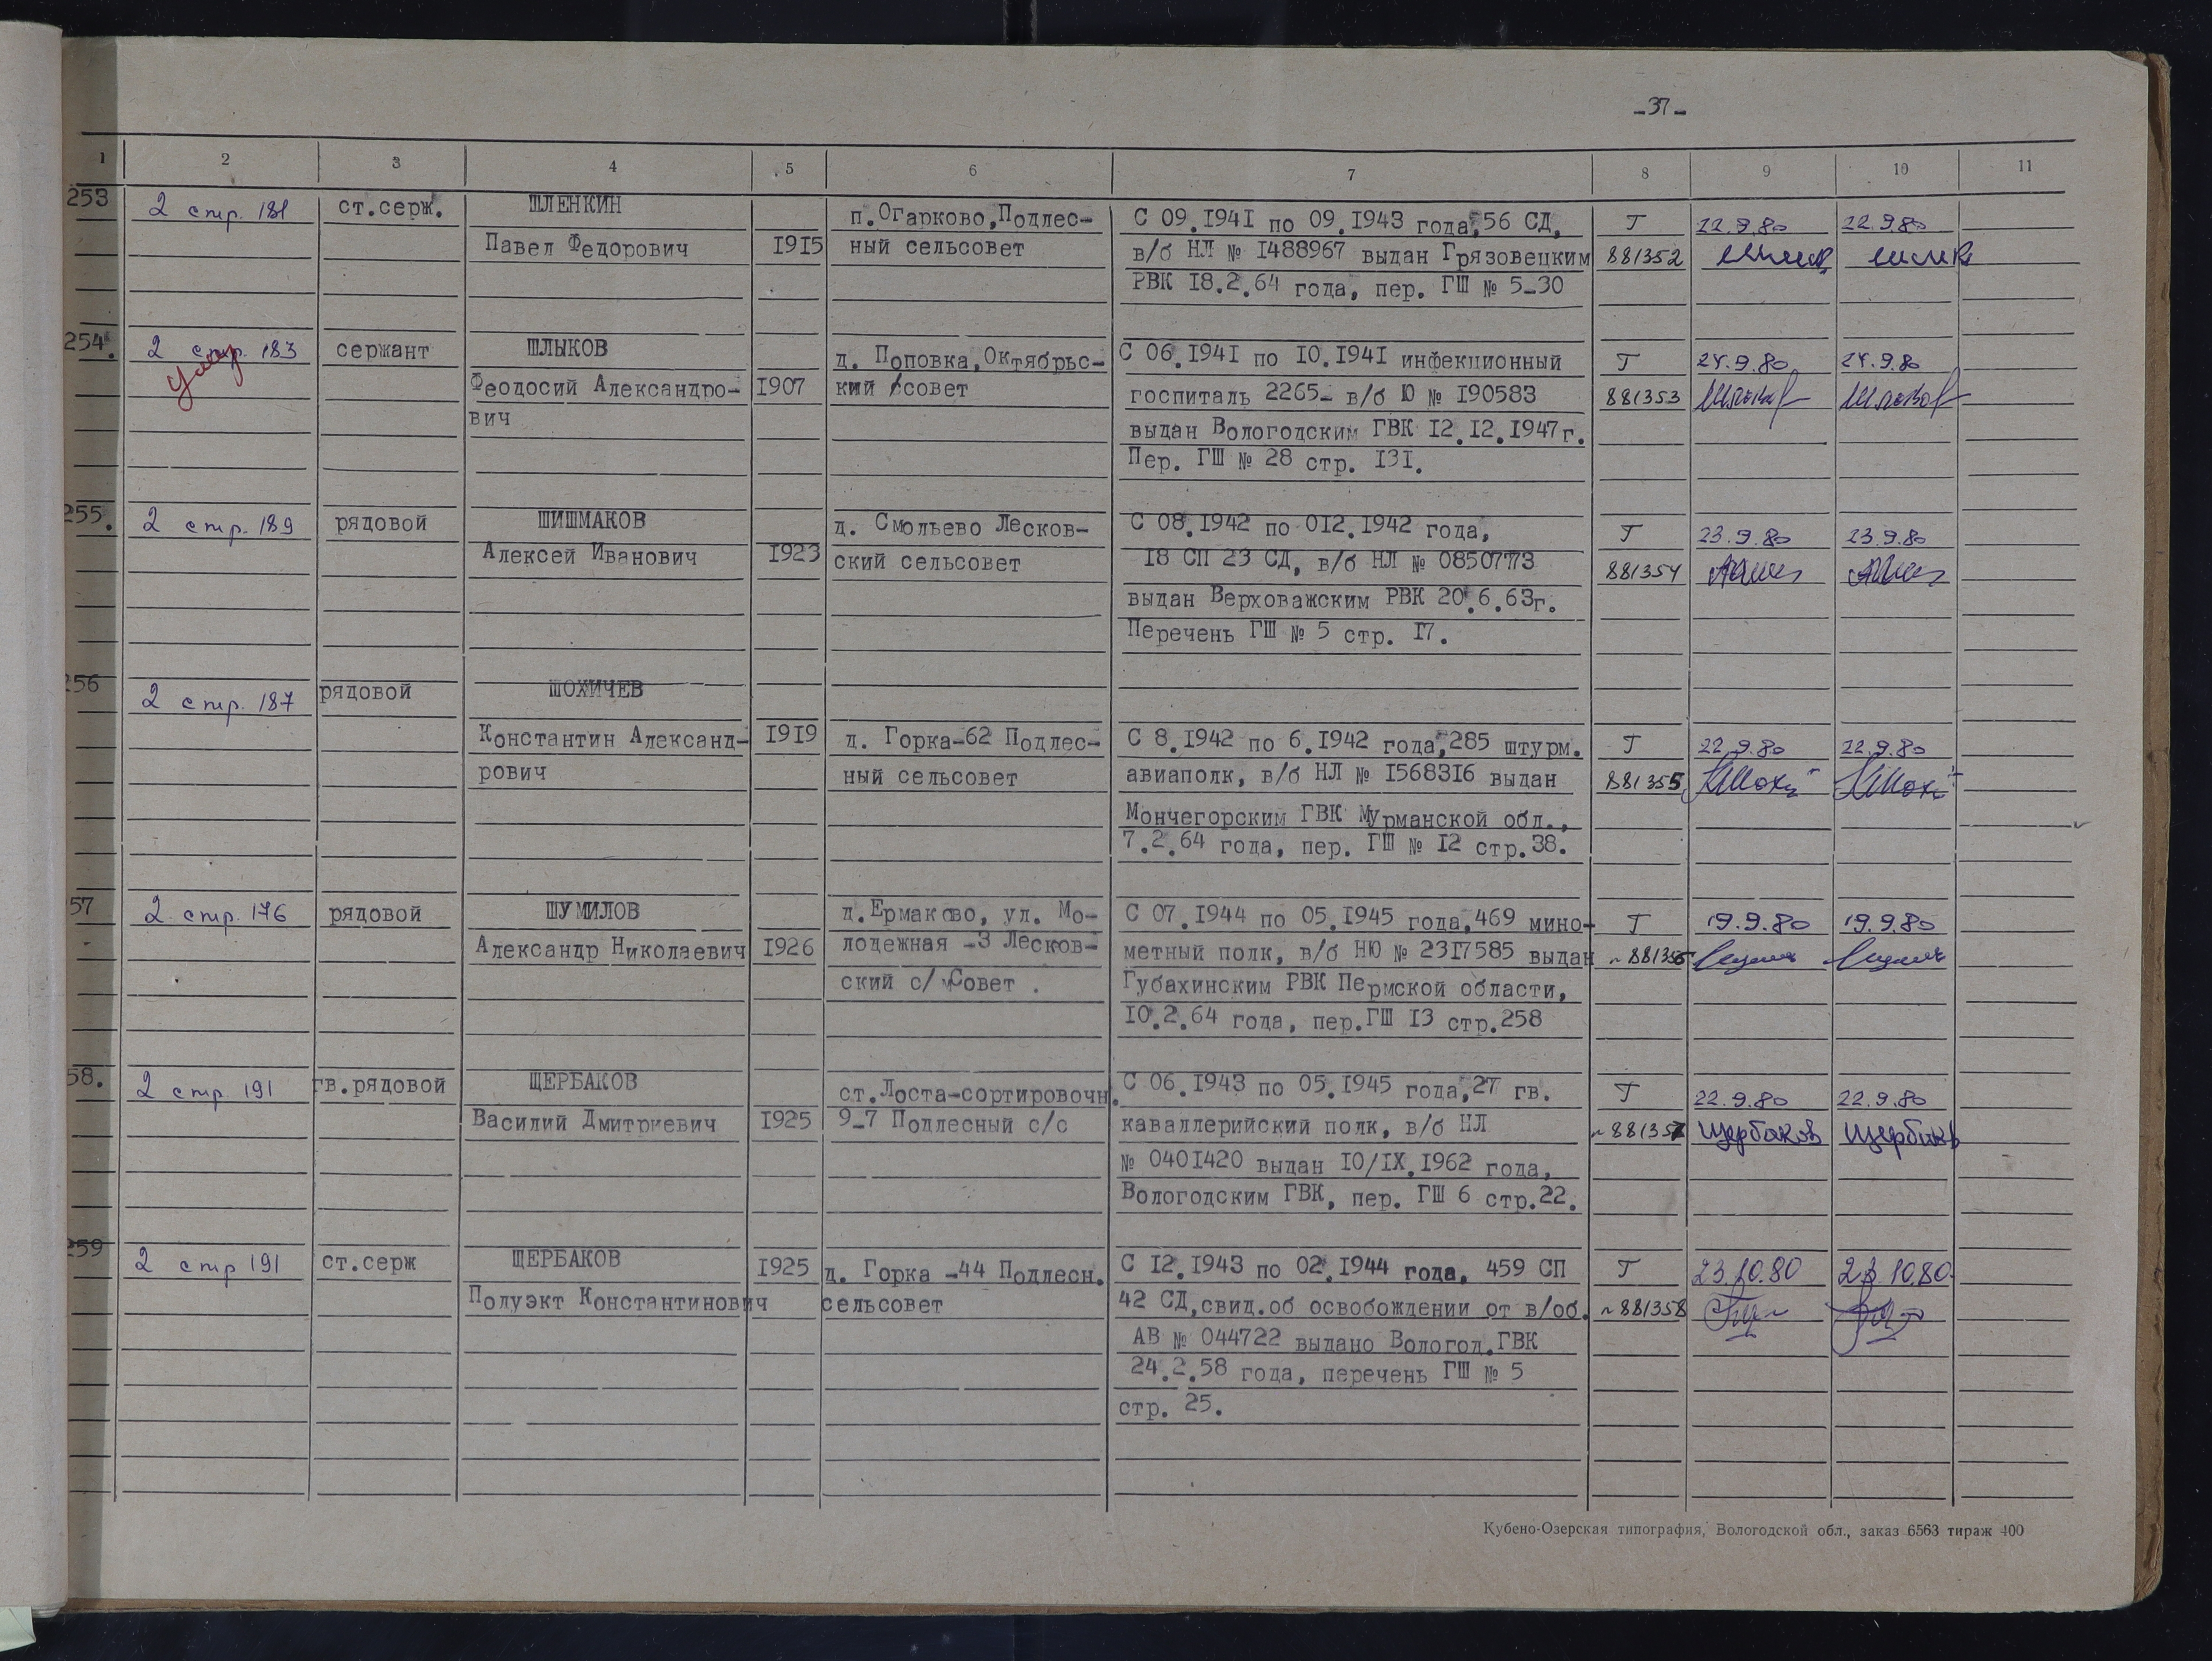 -37-
1 2 3 4 5 6 7 8 9 10 11
253 2 стр. 181 ст.серж. ШЛЕНКИН п.Огарково,Подлес- С 09.1941 по 09.1943 года,56 СД, Т 22.9.80 22.9.80
Павел Федорович 1915 ный сельсовет в/б НЛ № 1488967 выдан Грязовецким 881352
РВК 18.2.64 года, пер. ГШ № 5-30
254. 2 стр. 183 сержант ШЛЫКОВ д. Поповка,Октябрьс- С 06.1941 по 10.1941 инфекционный Т 24.9.80 24.9.80
Феодосий Александро- 1907 кий совет госпиталь 2265- в/б Ю № 190583 881353
вич выдан Вологодским ГВК 12.12.1947г.
Пер. ГШ № 28 стр. 131.
255. 2 стр. 189 рядовой ШИШМАКОВ д. Смольево Лесков- С 08.1942 по 012.1942 года, Т 23.9.80 23.9.80
Алексей Иванович 1923 ский сельсовет 18 СП 23 СД, в/б НЛ № 0850773 881354
выдан Верховажским РВК 20.6.63г.
Перечень ГШ № 5 стр. 17.
256 2 стр. 187 рядовой ШОХИЧЕВ
Константин Александ- 1919 д. Горка-62 Подлес- С 8.1942 по 6.1942 года,285 штурм. Т 22.9.80 22.9.80
рович ный сельсовет авиаполк, в/б НЛ № 1568316 выдан 881355
Мончегорским ГВК Мурманской обл.,
7.2.64 года, пер. ГШ № 12 стр.38.
57 2 стр. 176 рядовой ШУМИЛОВ д.Ермаково, ул. Мо- С 07.1944 по 05.1945 года,469 мино- Т 19.9.80 19.9.80
Александр Николаевич 1926 лодежная -3 Лесков- метный полк, в/б НЮ № 2317585 выдан 881356
ский с/ Совет . Губахинским РВК Пермской области,
10.2.64 года, пер.ГШ 13 стр.258
58. 2 стр 191 гв.рядовой ЩЕРБАКОВ ст.Лоста-сортировочн. С 06.1943 по 05.1945 года,27 гв. Т 22.9.80 22.9.80
Василий Дмитриевич 1925 9-7 Подлесный с/с каваллерийский полк, в/б НЛ 881357 Щербаков Щербаков
№ 0401420 выдан 10/IX.1962 года,
Вологодским ГВК, пер. ГШ 6 стр.22.
259 2 стр 191 ст.серж ЩЕРБАКОВ 1925 д. Горка -44 Подлесн. С 12.1943 по 02.1944 года. 459 СП Т 23.10.80 23.10.80
Полуэкт Константинович сельсовет 42 СД,свид.об освобождении от в/об. 881358
АВ № 044722 выдано Вологод.ГВК
24.2.58 года, перечень ГШ № 5
стр. 25.
Кубено-Озерская типография, Вологодской обл., заказ 6563 тираж 400